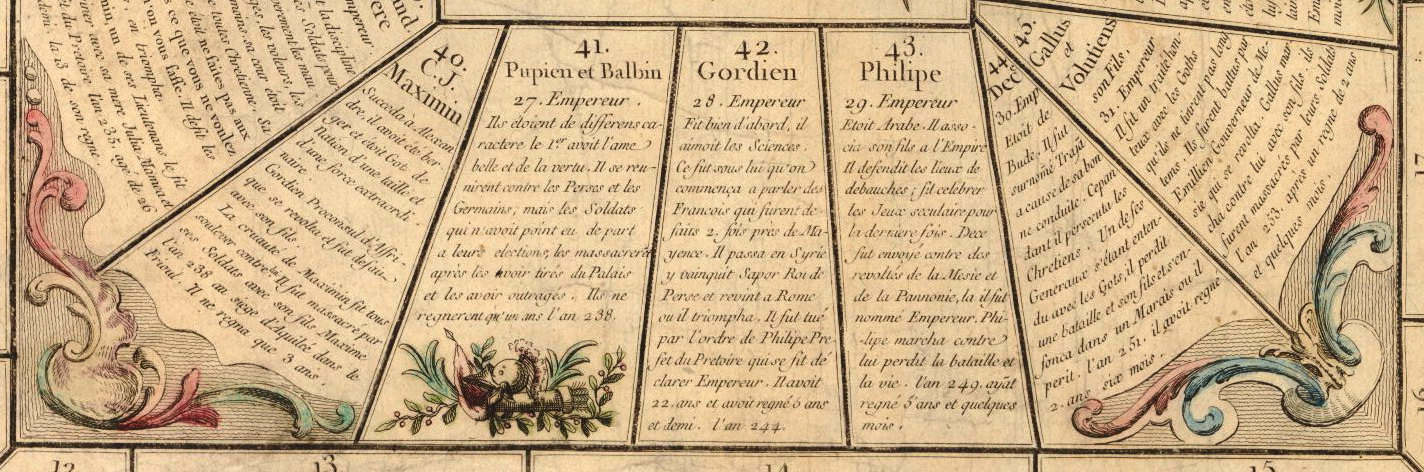 dant
ere
Empereur
la discipline
Soldats pour
vерement les mau
ges, les voleurs, les
mmes, sa cour etoit
Chretienne. Sa
etoit ne faites pas aux
ce que vous ne voulez
on vous fasse. Il defit les
en triompha.
un de ses Lieutenans le fit
avec sa mere Julia Mamea et
du Pretoire l'an 235. agé de 26
demi. la 13 de son regne.
40.
C.J.
Maximin
Succeda à Alexan
dre, il avoit été ber
ger et étoit Got. de
Nation d'une taille et
d'une force extraordi
naire.
Gordien Proconsul d'Affri
que se revolta et fut defait
avec son fils.
La cruauté de Maximin fit tous
soulever contre lui Il fut massacré par
ses Soldats avec son fils Maxime
l'an 238 au siege d'Aquilée dans le
Frioul. Il ne regna que 3 ans.
41.
Pupien et Balbin
27. Empereur.
Ils étoient de differens ca-
ractere le 1.er avoit l'ame
belle et de la vertu. Il se reu-
nirent contre les Perses et les
Germains, mais les Soldats
qui n'avoit point eu de part
a leurs elections, les massacrerēt
après les avoir tirés du Palais
et les avoir outragés. Ils ne
regnerent qu'un ans l'an 238.
42.
Gordien
28. Empereur
Fit bien d'abord, il
aimoit les Sciences.
Ce fut sous lui qu'on
commença a parler des
Francois qui furent de-
faits 2. fois près de Ma-
yence. Il passa en Syrie
y vainquit Sapor Roi de
Perse et revint a Rome
ou il triompha. Il fut tué
par l'ordre de Philipe Pre-
fet du Pretoire qui se fit dé
clarer Empereur. Il avoit
22. ans et avoit regné 5 ans
et demi. l'an 244.
43.
Philipe
29. Empereur
Etoit Arabe. Il asso-
cia son fils a l'Empire
Il defendit les lieux de
debauches; fit celebrer
les Jeux seculaire pour
la derniere fois. Dece
fut envoyé contre des
revoltés de la Mesie et
de la Pannonie, la il fut
nommé Empereur. Phi-
-lipe marcha contre
lui perdit la bataille et
la vie. l'an 249. ayāt
regné 5 ans et quelques
mois.
44.
Dece
30. Emp
Etoit de
Bude. Il fut
surnomé Trajā
a cause de sa bon
ne conduite. Cepan
dant il persecuta les
Chretiens. Un de ses
Generaux s'étant enten-
du avec les Gots, il perdit
une bataille et son fils et s'en-
fonca dans un Marais ou il
perit. l'an 251. il avoit regné
2. ans six mois.
45.
Gallus
et
Volutiens
son Fils.
31. Empereur
Il fit un traité hon-
teux avec les Goths
qu'ils ne tinrent pas long
tems. Ils furent battus par
Emilien Gouverneur de Me-
sie qui se revolta. Gallus mar
cha contre lui avec son fils ils
furent massacrés par leurs Soldats
l'an 253. après un regne de 2 ans
et quelques mois.
12
13
14
15